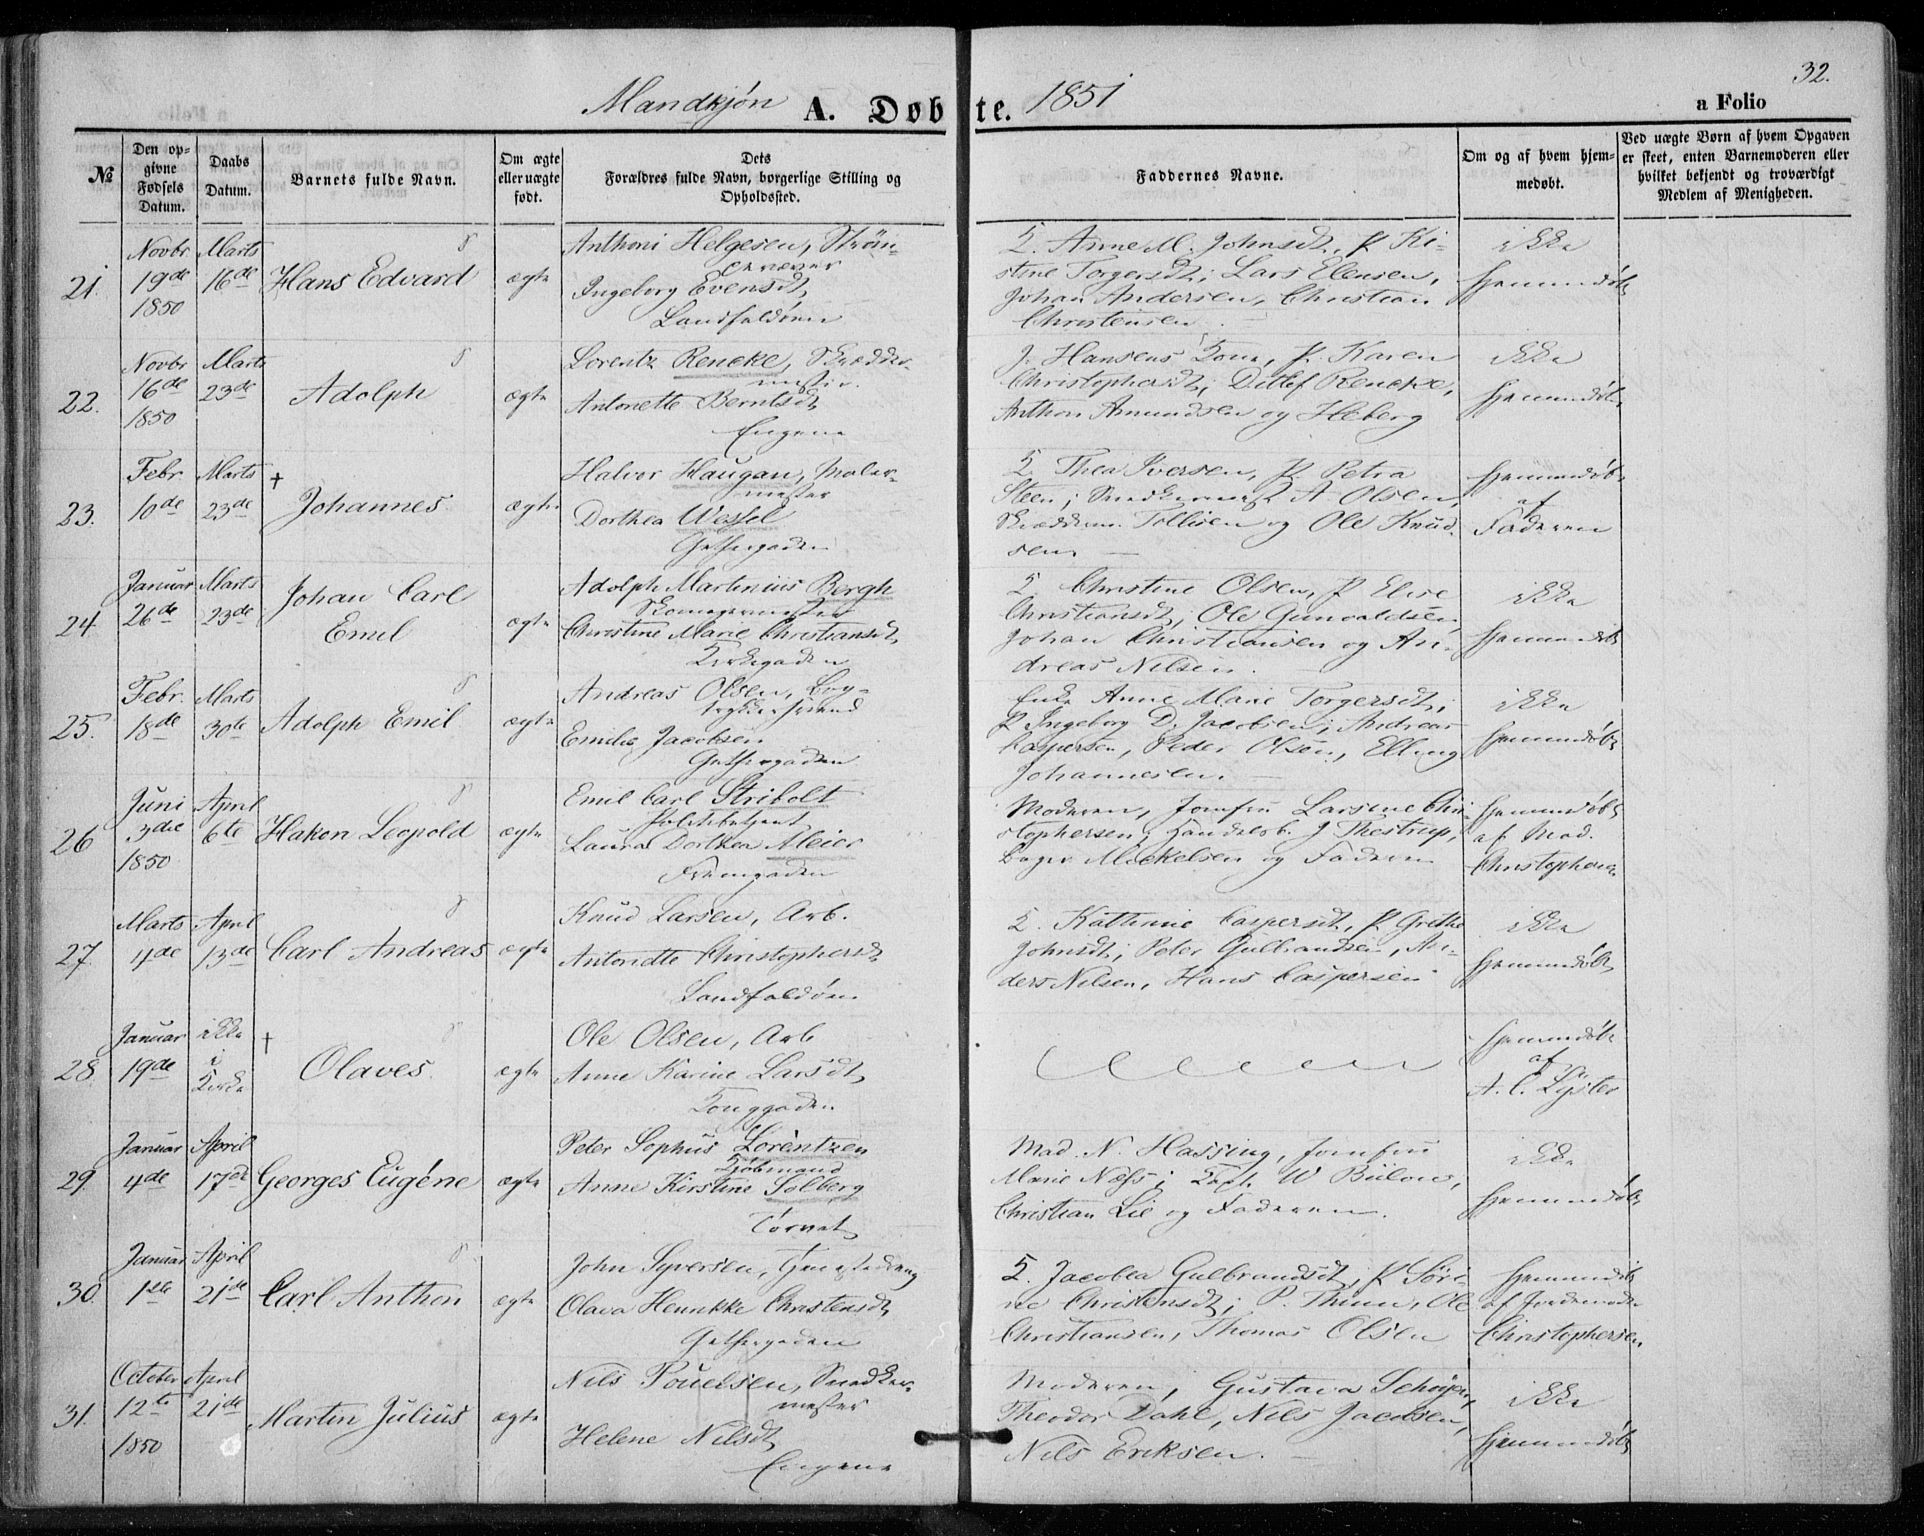 32.
Mandkjøn A. Døbte. 1851 a Folio
№
Den op-
givne
Fødsels
Datum.
Daabs
Datum.
Barnets fulde Navn.
Om ægte
eller uægte
født.
Dets
Forældres fulde Navn, borgerlige Stilling og
Opholdssted.
Faddernes Navne.
Om og af hvem hjem-
medøbt.
Ved uægte Børn af hvem Opgaven
er skeet, enten Barnemoderen eller
hvilket bekjendt og troværdigt
Medlem af Menigheden.
21.
Novbr
19de
1850
Marts
16de
Hans Edvard
ægte
Anthoni Helgesen,
Ingeborg Evensdt
Landfaldøen
Anne M. Johnsdt, P. Ki-
stine Torgersdt; Lars Elensen,
Johan Andersen, Christian
Christensen
ikke
hjemmedøbt
22.
Novbr
16de
1850
Marts
23de
Adolph
ægte
Lorentz Rencke, Skrædder-
mester.
Antonette Berntsdt
Engene
J. Hansens Kone, P. Karen
Christophersdt; Ditlef Rencke,
Anthon Amundsen og Heberg
ikke
hjemmedøbt
23.
Febr.
10de
Marts
23de
†
Johannes
ægte
Halvor Haugan, Maler-
mester
Dorthea Wessel
Gethergaden
Thea Iversen, P. Petra
Steen; Snedkermest A Olsen,
Skrædderm. Tollisen og Ole Knud-
sen.
hjemmedøbt
af
Faderen
24.
Januar
26de
Marts
23de
Johan Carl
Emil
ægte
Adolph Martinius Bergh
Skomagermester
Christine Marie Christiansdt
Kirkegaden
Christine Olsen, P. Elise
Christiansdt; Ole Gunvaldsen,
Johan Christiansen og An-
dreas Nilsen.
ikke
hjemmedøbt
25.
Febr.
18de
Marts
30te
Adolph Emil
ægte
Andreas Olsen, Bog-
trykkersvend
Emilie Jacobsen
Gethergaden
Enke Anne Marie Torgersdt,
P. Ingeborg D. Jacobsen; Andreas
Caspersen, Peder Olsen, Elling
Johannesen.
ikke
hjemmedøbt
26
Juni
3die
1850
April
6te
Hakon Leopold
ægte
Emil Carl Stribolt
Politibetjent
Laura Dorthea Meier
Strømgaden
Moderen, Jomfru Larsine Chri-
stophersen; Handelsb. J. Thestrup,
Bager Mickelsen og Faderen
hjemmedøbt
af Mad.
Christophersen
27.
Marts
4de
April
13de
Carl Andreas
ægte
Knud Larsen, Arb.
Antonette Christophersdt
Landfaldøen
Kathrine Caspersdt, P. Grethe
Johnsdt; Peter Gulbrandsen, An-
ders Nilsen, Hans Caspersen
ikke
hjemmedøbt
28.
Januar
19de
ikke
i
Kirke
†
Olaves
ægte
Ole Olsen, Arb
Anne Karine Larsdt
Konggaden
hjemmedøbt
af
A. C. Lyster
29
Januar
4de
April
17de
Georges Eugéne
ægte
Peter Sophus Lorentzen
Kjøbmand
Anne Kirstine Solberg
Torvet
Mad. N. Hassing, Jomfru
Marie Næss; Capt. W Bülow,
Christian Lie og Faderen.
ikke
hjemmedøbt
30.
Januar
1ste
April
21de
Carl Anthon
ægte
John Syversen, Tjenestedreng
Olava Henrikke Christensdt
Gethergaden
Jacobea Gulbrandsdt, P. Søri-
ne Christensdt; P. Thune, Ole
Christiansen, Thomas Olsen
hjemmedøbt
af Jordemoder
Christophersen
31.
October
12te
1850
April
21de
Martin Julius
ægte
Nils Pouelsen, Snedker-
mester
Helene Nilsdt
Engene
Moderen; Gustava Schøyen,
Theodor Dahl, Nils Jacobsen,
Nils Eriksen.
ikke
hjemmedøbt